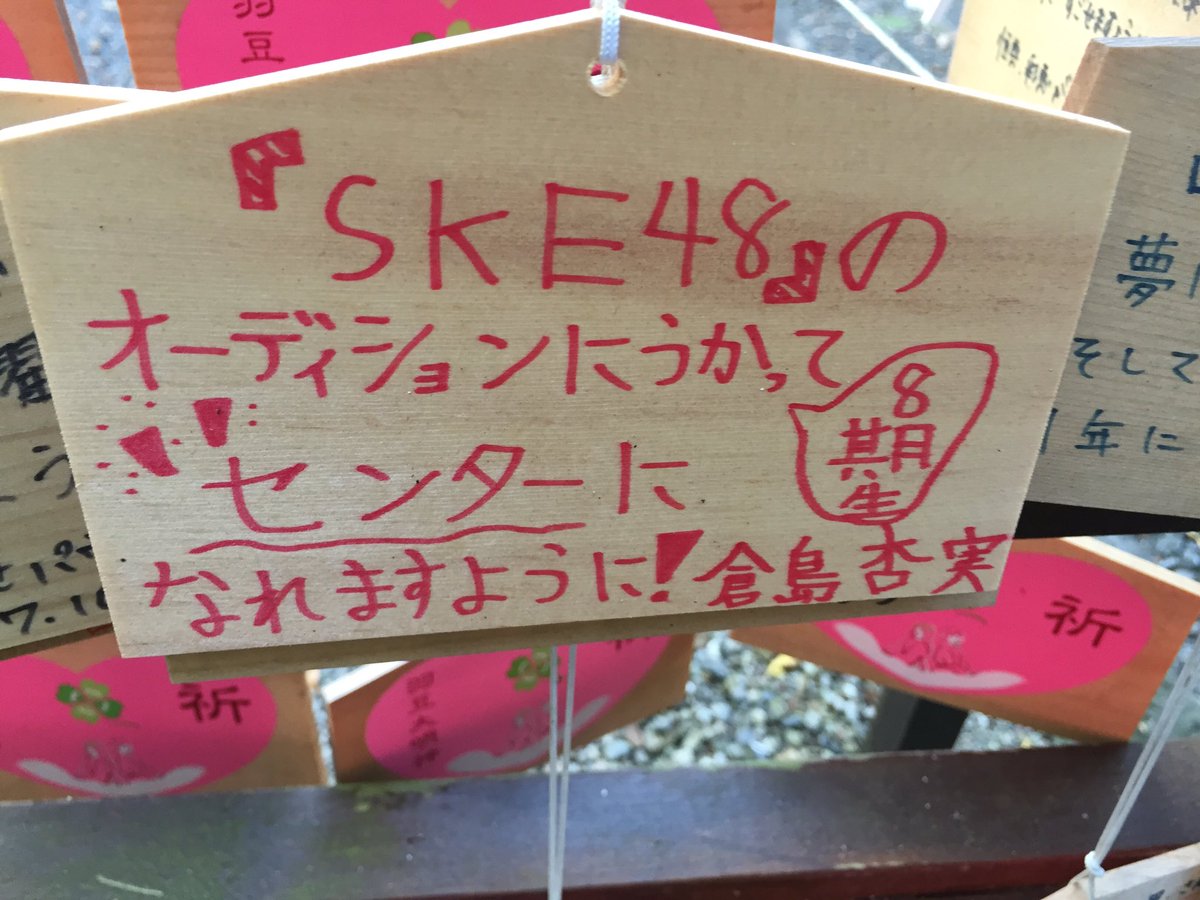 『SKE48』の
オーディションにうかって
8
期生
センターに
なれますように! 倉島杏実
羽豆
夢
そして
年に
祈
祈